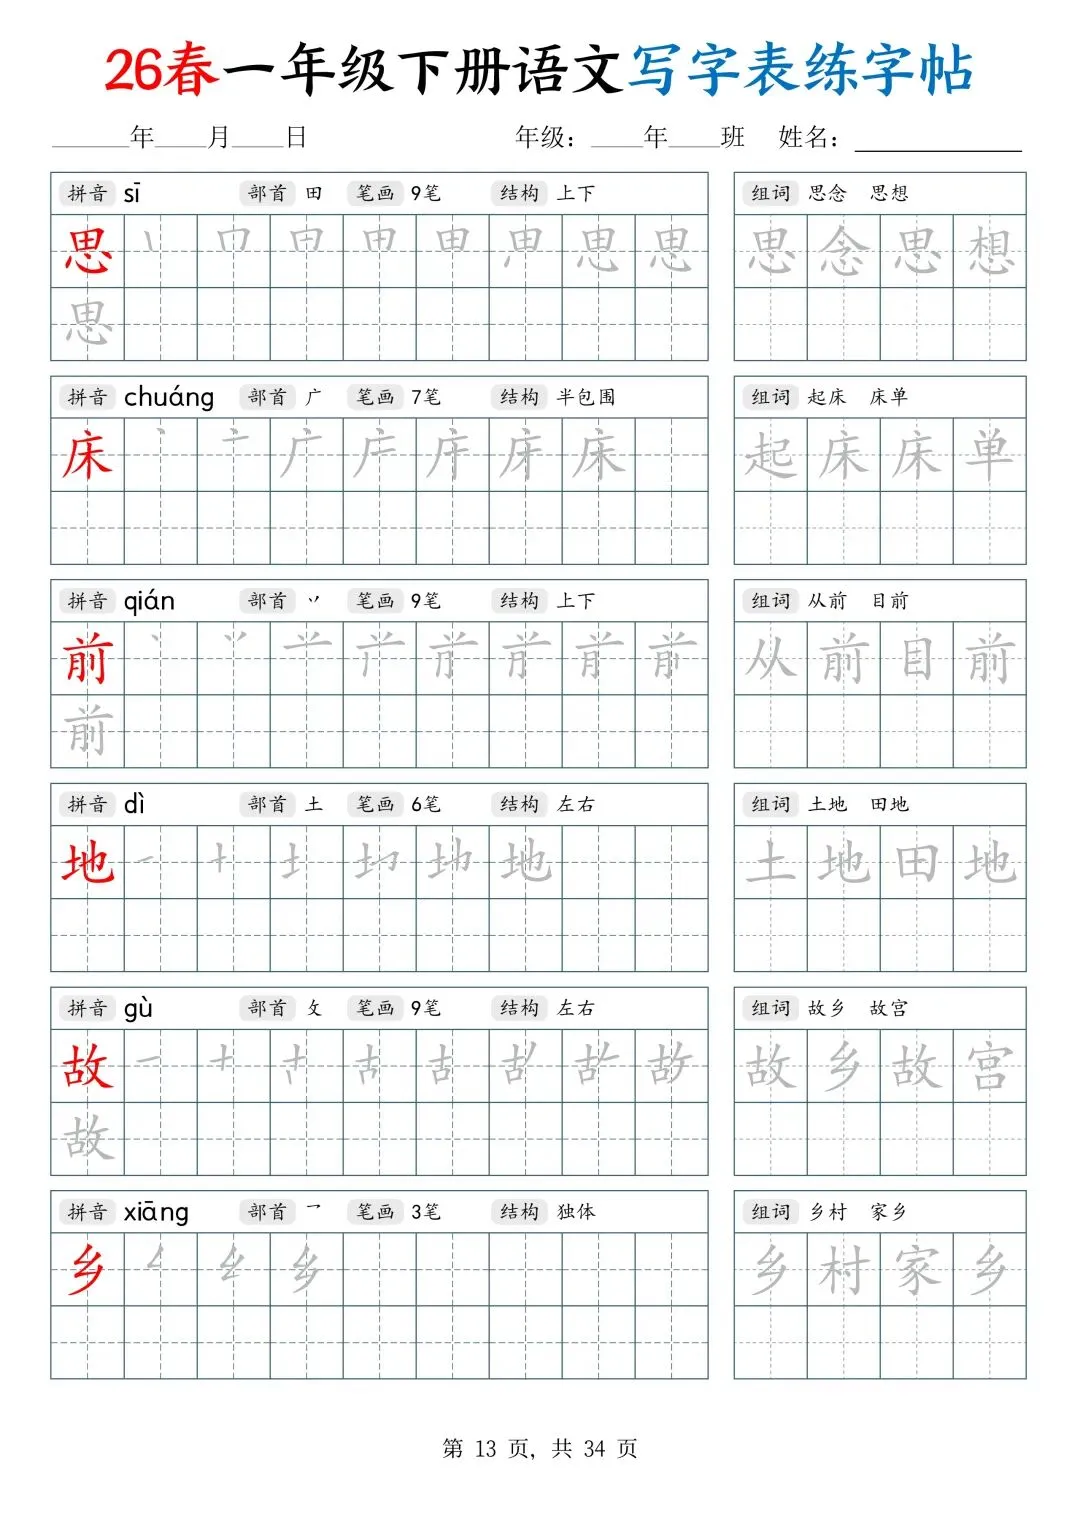 26春一年级下册语文写字表练字帖
______年____月____日 年级：____年____班 姓名：____________
拼音 sī 部首 田 笔画 9笔 结构 上下 组词 思念 思想
思 思 思 思 念 思 想
思
拼音 chuáng 部首 广 笔画 7笔 结构 半包围 组词 起床 床单
床 床 起 床 床 单
拼音 qián 部首 丷 笔画 9笔 结构 上下 组词 从前 目前
前 从 前 目 前
前
拼音 dì 部首 土 笔画 6笔 结构 左右 组词 土地 田地
地 地 土 地 田 地
拼音 gù 部首 攵 笔画 9笔 结构 左右 组词 故乡 故宫
故 故 乡 故 宫
故
拼音 xiāng 部首 乛 笔画 3笔 结构 独体 组词 乡村 家乡
乡 乡 乡 村 家 乡
第 13 页, 共 34 页